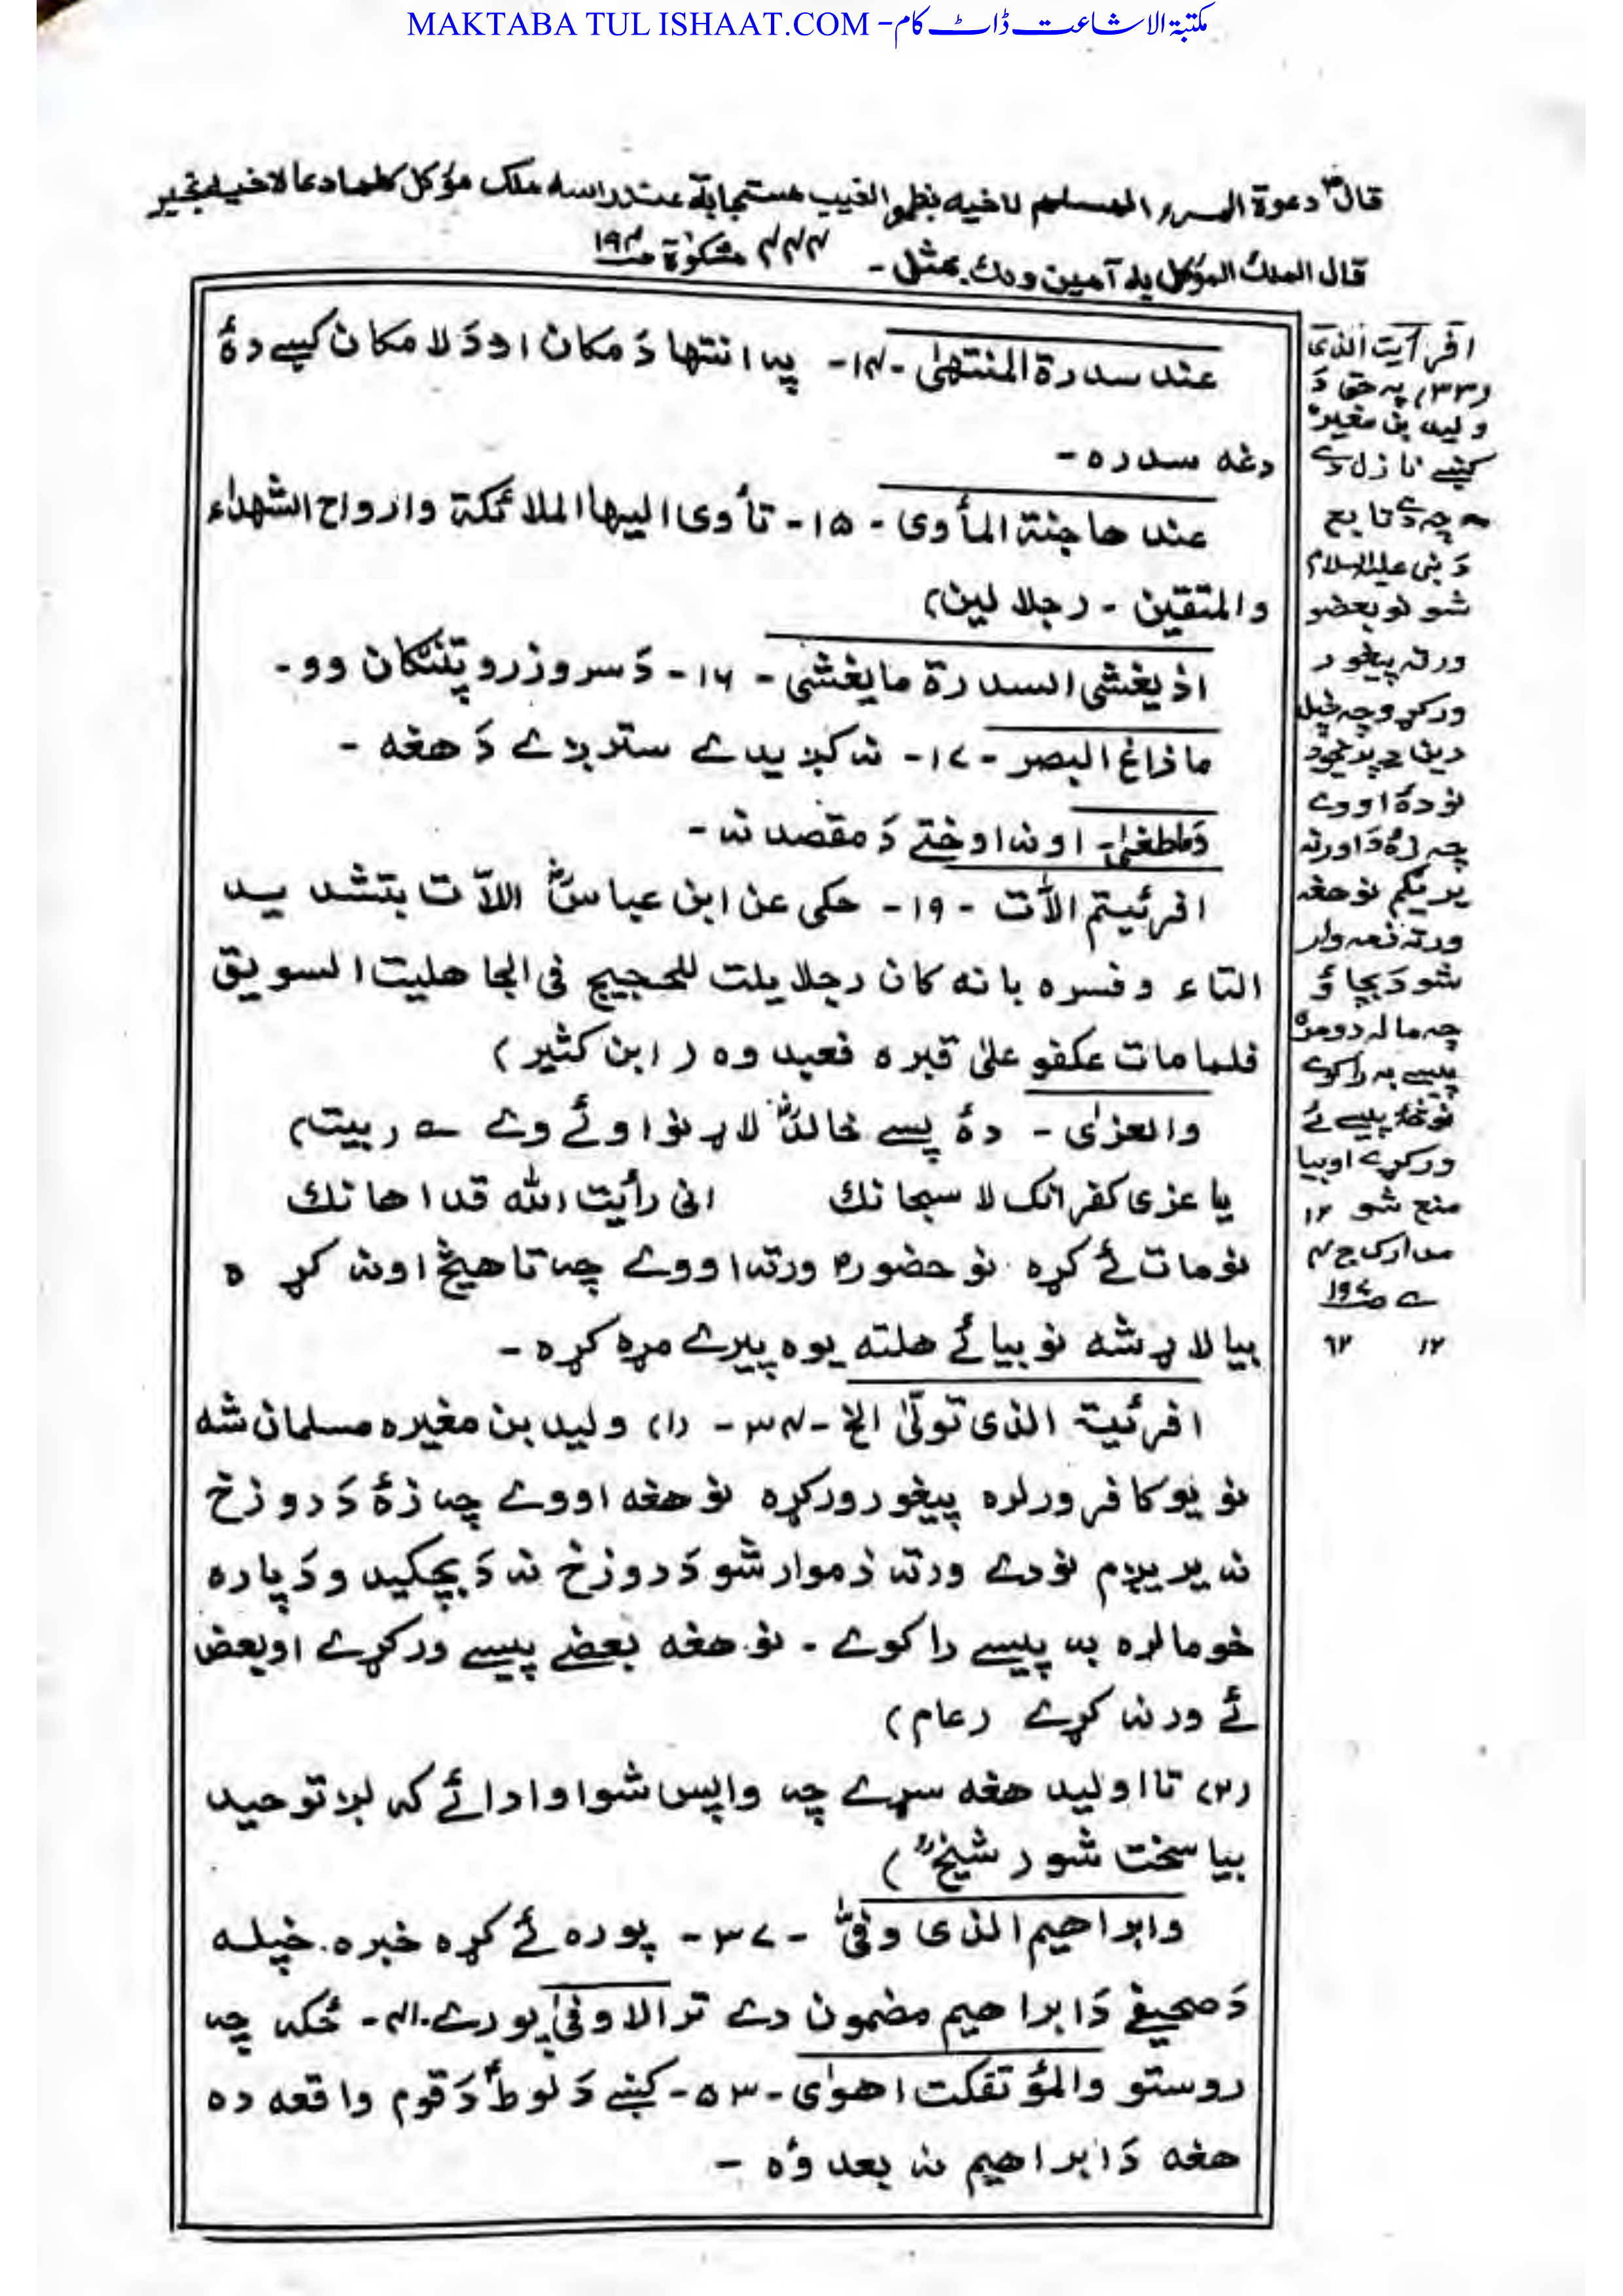 MAKTABA TUL ISHAAT.COM - مکتبۃ الاشاعت ڈاٹ کام
قالؐ دعوة المرء المسلم لاخيه بظهر الغيب مستجابة عند راسه ملك مؤكل كلما دعا لاخيه بخير
قال الملك المؤكل به آمين ولك بمثل - مشکوٰة ص۱۹۴
عند سدرة المنتهىٰ -۱۴- په انتها دَ مکان او دَ لا مکان کښے دهٔ
دغه سدره -
عندها جنة المأوى - ۱۵- تأوى اليها الملائكة وارواح الشهداء
والمتقين - (جلالين)
اذ يغشى السدرة ما يغشى - ۱۶- دَ سرو زرو پتنګان وو -
ما زاغ البصر - ۱۷- نه کږیدے سترګے دَ هغه -
وَما طغىٰ- او نه اوختے دَ مقصد نه -
افرئيتم الّات - ۱۹- حکی عن ابن عباسؓ اللّات بتشدید
التاء وفسره بانه کان رجلا یلت للحجیج فی الجاهلیت السویق
فلما مات عکفو علیٰ قبره فعبدوه (ابن کثیر)
والعزىٰ - دهٔ پسے خالدؓ لاړ نو اوئے وے ے (بیت)
یا عزی کفرانک لا سبحانک انی رأیت الله قد اهانک
نو مات ئے کړه نو حضورؐ ورته اووے چه تا هیڅ اونه کړه
بیا لاړ شه نو بیائے هلته یوه پیرے مړه کړه -
افرئیت الذی تولّیٰ الخ -۳۴- (۱) ولید بن مغیره مسلمان شه
نو یو کافر ورلره پیغور ورکړه نو هغه اووے چه زهٔ دَ دوزخ
نه یریږم نو دے ورته ذموار شو دَ دوزخ نه دَ بچکیدو دَ پاره
خو مالره به پیسے راکوے - نو هغه بعضے پیسے ورکړے او بعض
ئے ورنه کړے (عام)
(۲) تا اولید هغه سړے چه واپس شو او ادائے که لږ توحید
بیا سخت شو (شیخؒ)
وابراهیم الذی وفیّٰ - ۳۷- پوره ئے کړه خبره خپله
دَ صحیفے دَ ابراهیم مضمون دے تر الاوفیٰ پورے -۴۱- ځکه چه
روستو والمؤتفکت اهوٰی - ۵۳- کښے دَ لوطؑ دَ قوم واقعه ده
هغه دَ ابراهیم نه بعد وه -
افرأیت الذی
(۳۳) په حق دَ
ولید بن مغیره
کښے نازل دے
چه دے تابع
دَ نبی علیه السلام
شو نو بعضو
ورته پیغور
ورکړو چه خپل
دین دے پریخود
نو دهٔ اووے
چه زهٔ دَ اور نه
یریګم نو هغه
ورته ذمه وار
شو دَ بچاؤ
چه ماله دومره
پیسے به راکوے
نو څهٔ پیسے ئے
ورکړے او بیا
منع شو ۱۲
مدارک ج۴
ص۱۹۷
۱۲ ۶۲